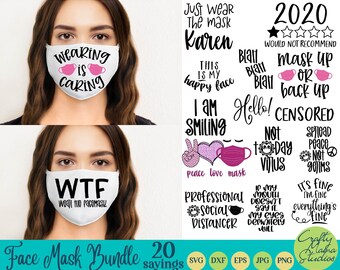 WEARING
IS
CARING
WTF
WEAR THE FACEMASK
JUST WEAR
THE MASK
Karen
THIS IS
MY
HAPPY FACE
BLAH
BLAH
BLAH
2020
WOULD NOT RECOMMEND
MASK UP
OR
BACK UP
I AM
SMILING
Hello!
CENSORED
peace love mask
NOT
TODAY
VIRUS
SPREAD
PEACE
NOT
GERMS
PROFESSIONAL
SOCIAL
DISTANCER
IF MY
MOUTH
DOESN'T
SAY IT
MY EYES
DEFINITELY
WILL
IT'S FINE
I'M FINE
EVERYTHING'S
FINE
Face Mask Bundle
20
sayings
SVG
DXF
EPS
JPG
PNG
Studios